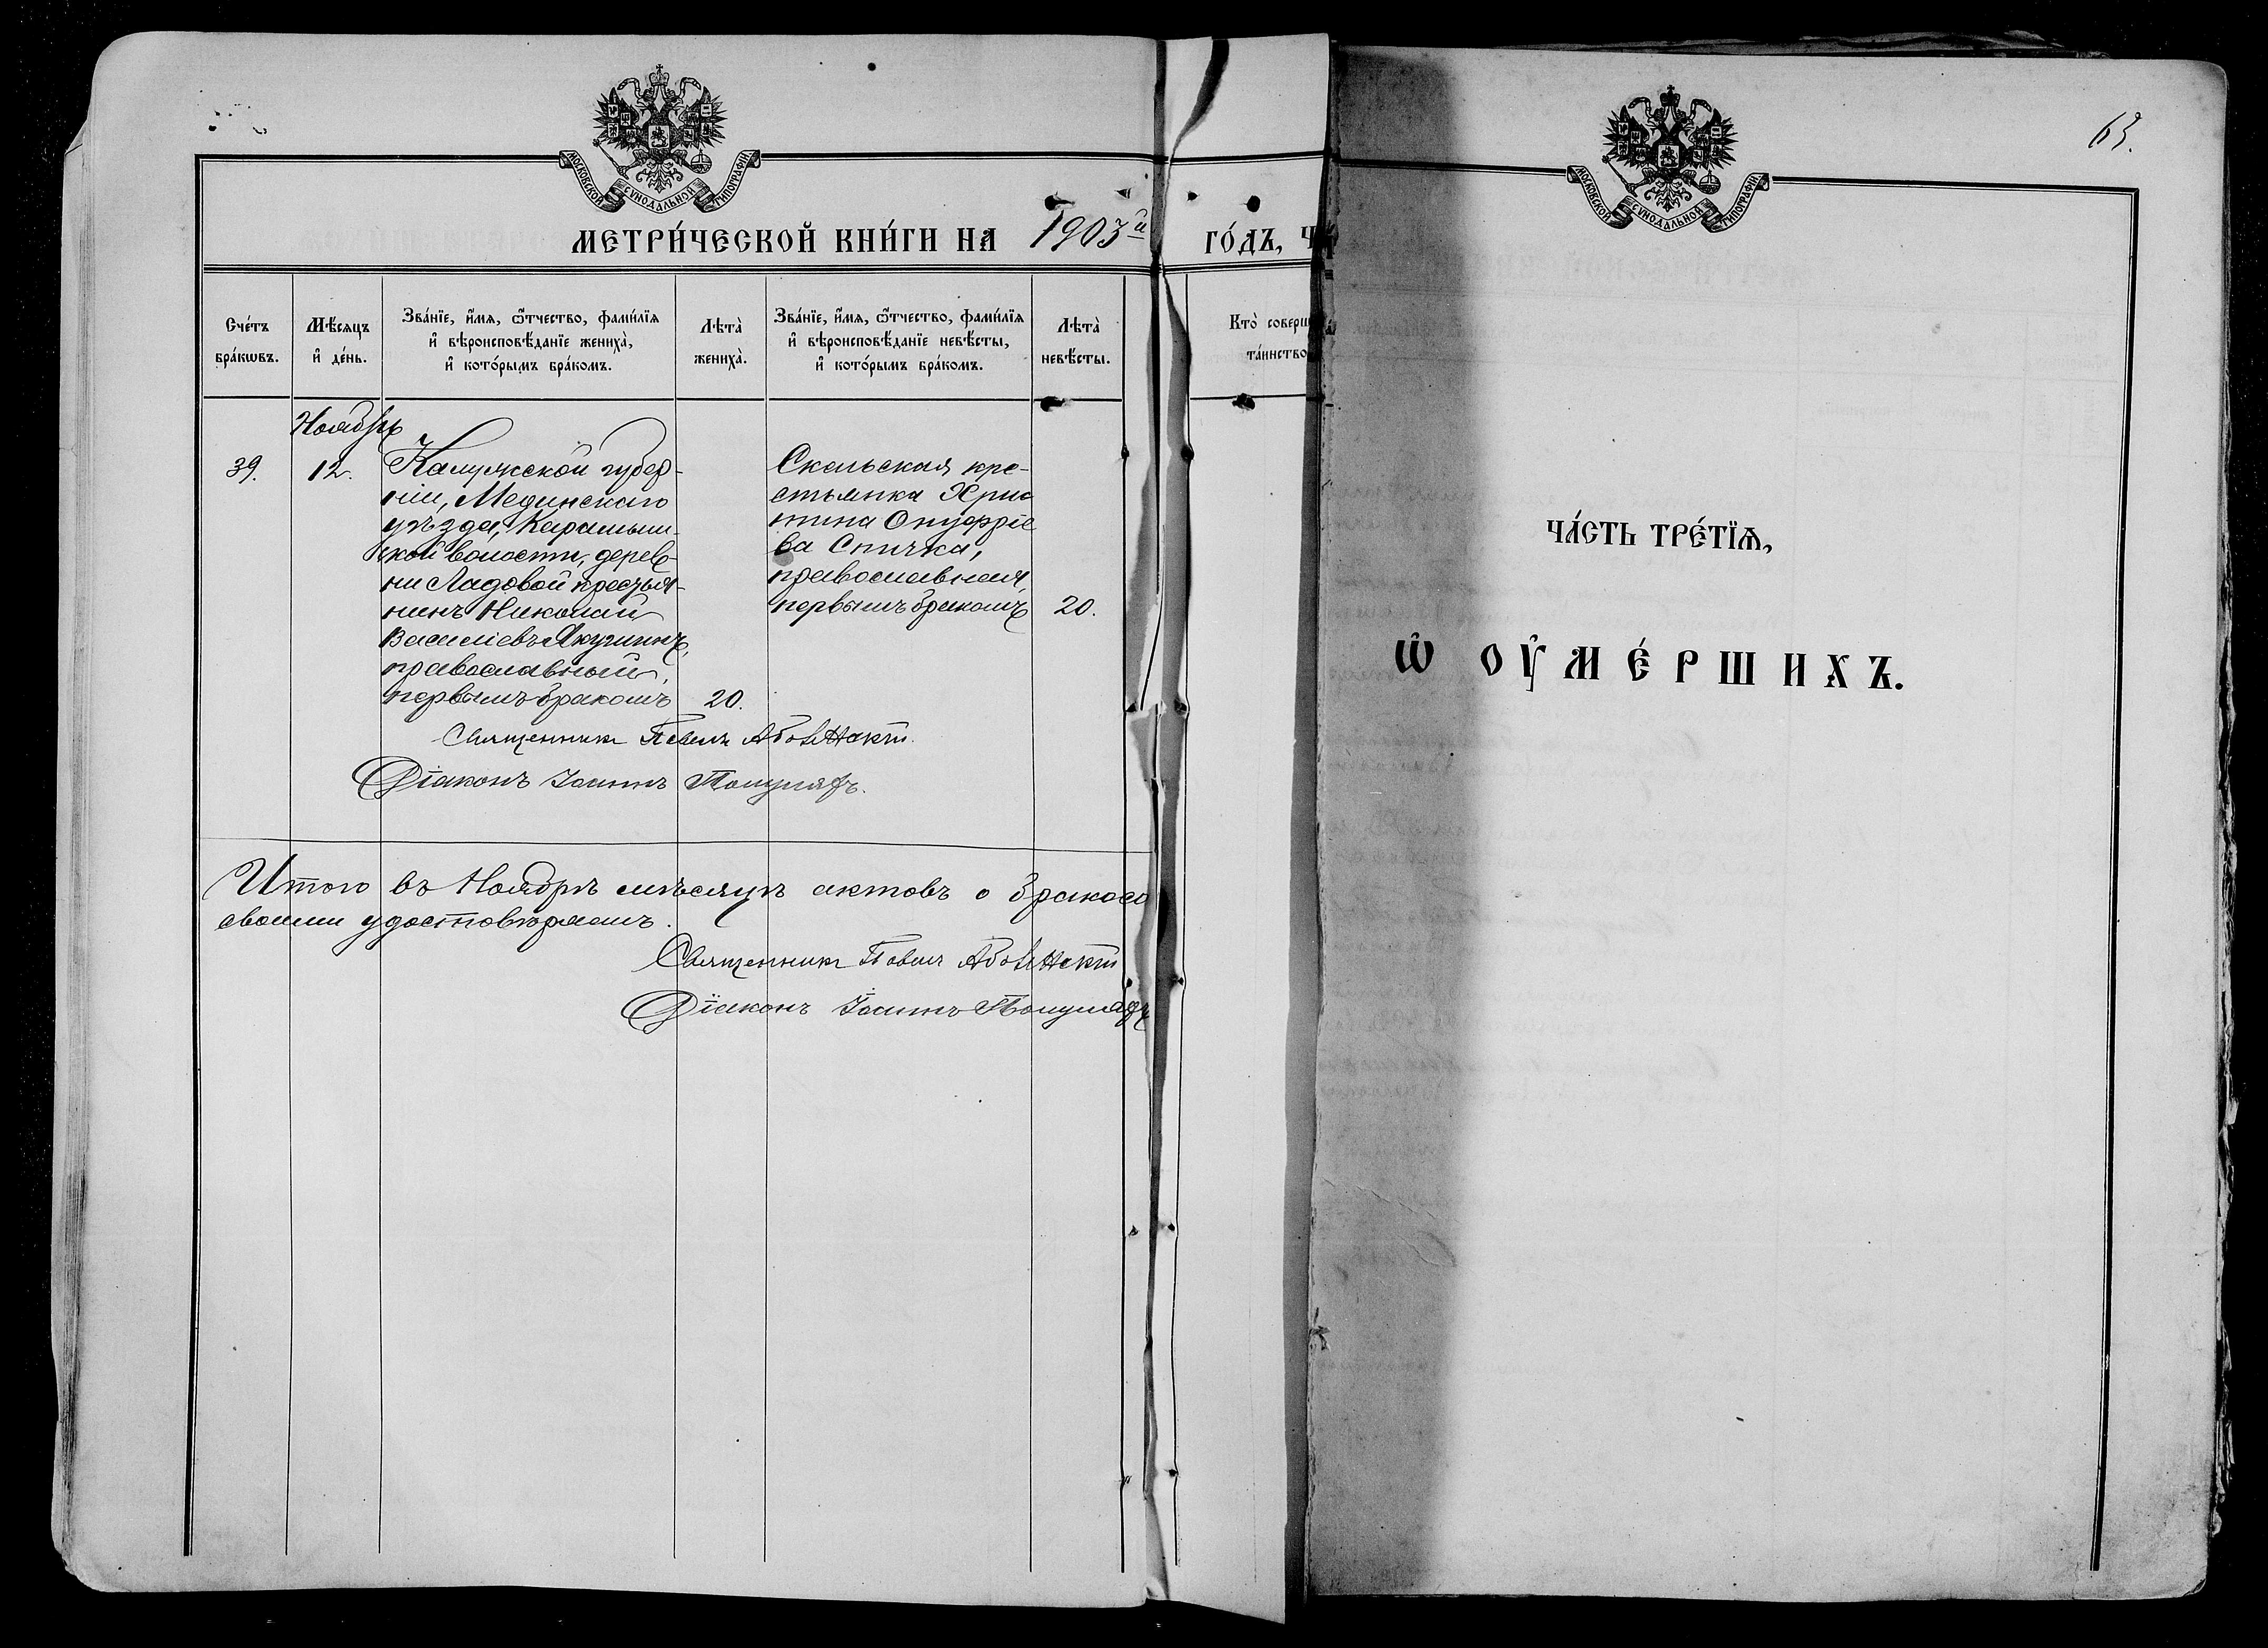 МОСКОВСКОЙ СѴНОДАЛЬНОЙ ТИПОГРАФІИ
МЕТРИ́ЧЕСКОЙ КНИ́ГИ НА 1903й ГО́ДЪ, Ч
Сче́тъ бра́кѡвъ.
Мѣ́сяцъ и҆ де́нь.
Зва́нїе, и҆́мѧ, ѻ҆́тчество, фами́лїѧ
и҆ вѣроисповѣ́данїе жениха̀,
и҆ кото́рымъ бра́комъ.
Лѣта̀ жениха̀.
Зва́нїе, и҆́мѧ, ѻ҆́тчество, фами́лїѧ
и҆ вѣроисповѣ́данїе невѣ́сты,
и҆ кото́рымъ бра́комъ.
Лѣта̀ невѣ́сты.
Кто̀ соверш
та́инство
Ноябрь
39. 12.
Калужской губер-
ніи, Медынскаго
уѣзда,
ской волости, дерев-
ни Ладовой крестья-
нинъ Николай
Василіевъ Якушинъ,
православный,
первымъ бракомъ 20.
Скельская кре-
стьянка Хрис
тина Онуфріе
ва Спичка,
православная
первымъ бракомъ 20.
Священникъ Павелъ
Діаконъ Іоаннъ
Итого въ Ноябрѣ мѣсяцѣ актовъ о бракосо
своими удостовѣряемъ.
Священникъ Павелъ
Діаконъ Іоаннъ
МОСКОВСКОЙ СѴНОДАЛЬНОЙ ТИПОГРАФІИ
63.
ЧА́СТЬ ТРЕ́ТЇѦ,
Ѡ҆ ОУ҆МЕ́РШИХЪ.